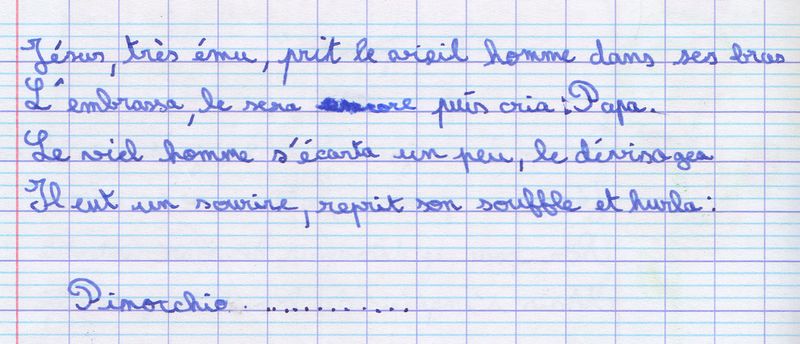 Jésus, très ému, prit le vieil homme dans ses bras
L'embrassa, le serra encore puis cria : Papa.
Le viel homme s'écarta un peu, le dévisagea
Il eut un sourire, reprit son souffle et hurla :
Pinocchio..............